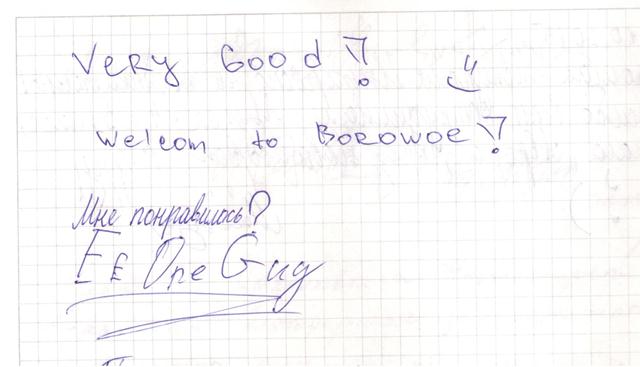 Very Good!
Welcom to Borowoe!
Мне понравилось?
EE One Guy